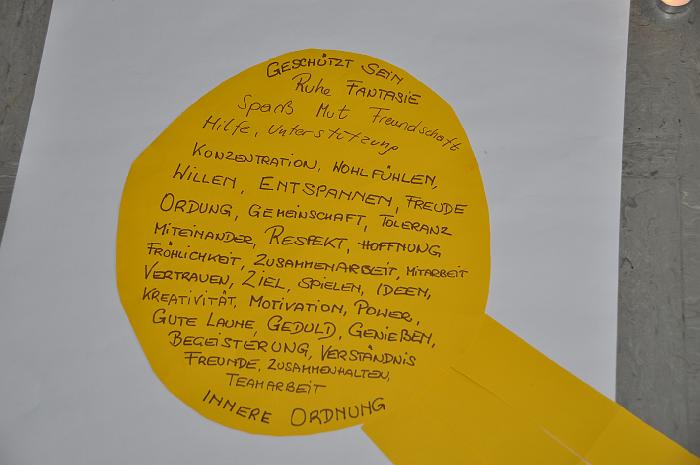 GESCHÜTZT SEIN
Ruhe FANTASIE
Spaß Mut Freundschaft
Hilfe, Unterstützung
KONZENTRATION, WOHLFÜHLEN,
WILLEN, ENTSPANNEN, FREUDE
ORDUNG, GEMEINSCHAFT, TOLERANZ
MITEINANDER, RESPEKT, HOFFNUNG
FRÖHLICHKEIT, ZUSAMMENARBEIT, MITARBEIT
VERTRAUEN, ZIEL, SPIELEN, IDEEN,
KREATIVITÄT, MOTIVATION, POWER,
GUTE LAUNE, GEDULD, GENIEßEN,
BEGEISTERUNG, VERSTÄNDNIS
FREUNDE, ZUSAMMENHALTEN,
TEAMARBEIT
INNERE ORDNUNG